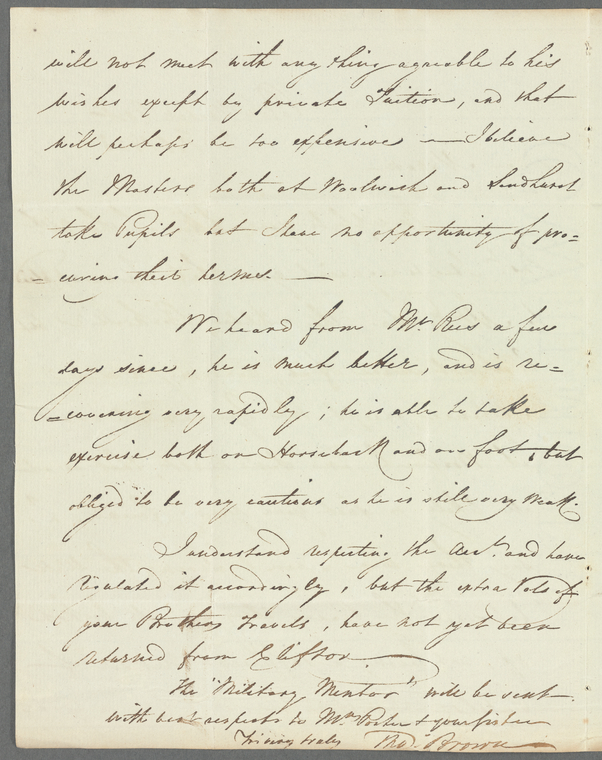 will not meet with any thing agreable to his
wishes except by private Tuition, and that
will perhaps be too expensive — I believe
the Masters both at Woolwich and Sandhurst
take Pupils but I have no opportunity of pro=
=curing their terms. —
We heard from Mr. Rees a few
days since, he is much better, and is re=
=covering very rapidly; he is able to take
exercise both on Horseback and on foot, but
obliged to be very cautious as he is still very weak.
I understand respecting the Acct. and have
regulated it accordingly, but the extra Vols of
your Brothers Travels, have not yet been
returned from Clifton.
The "Military Mentor" will be sent.
with best respects to Mrs. Porter & your sister
I'm very truly Thos. Brown